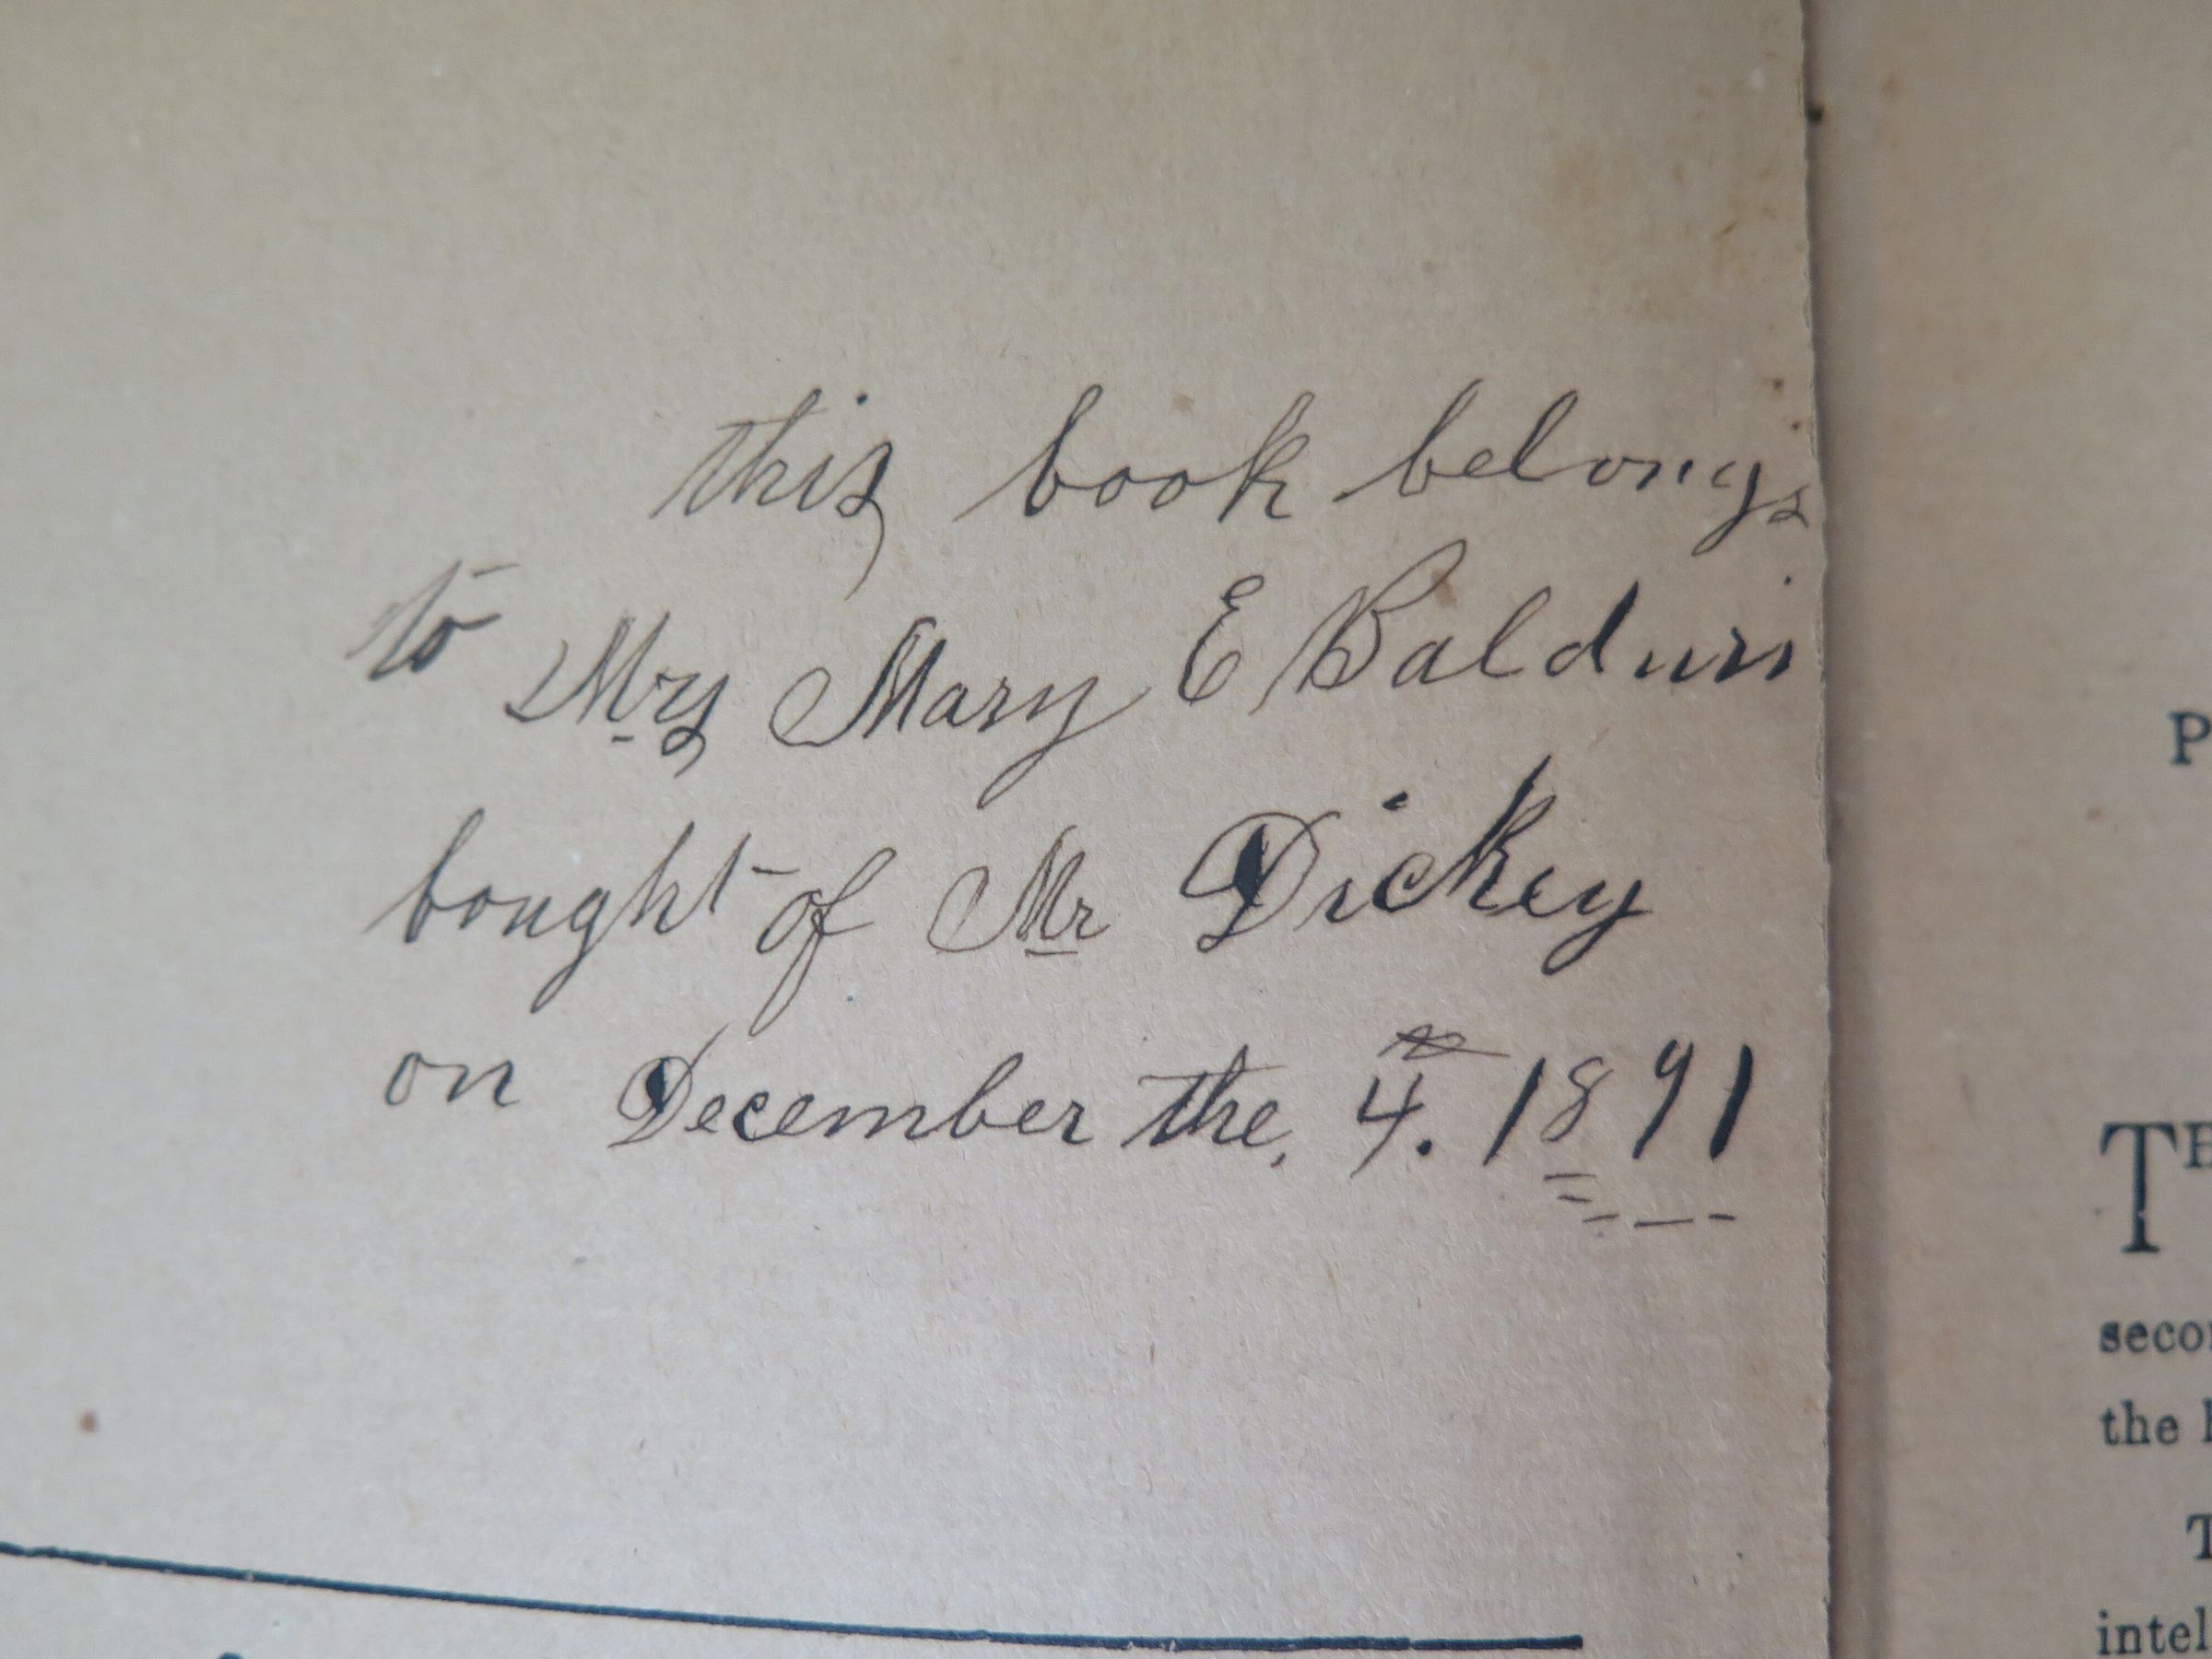 this book belongs
to Mrs Mary E Baldwin
bought of Mr Dickey
on December the, 4. 1891
P
TH
secon
the
T
intel